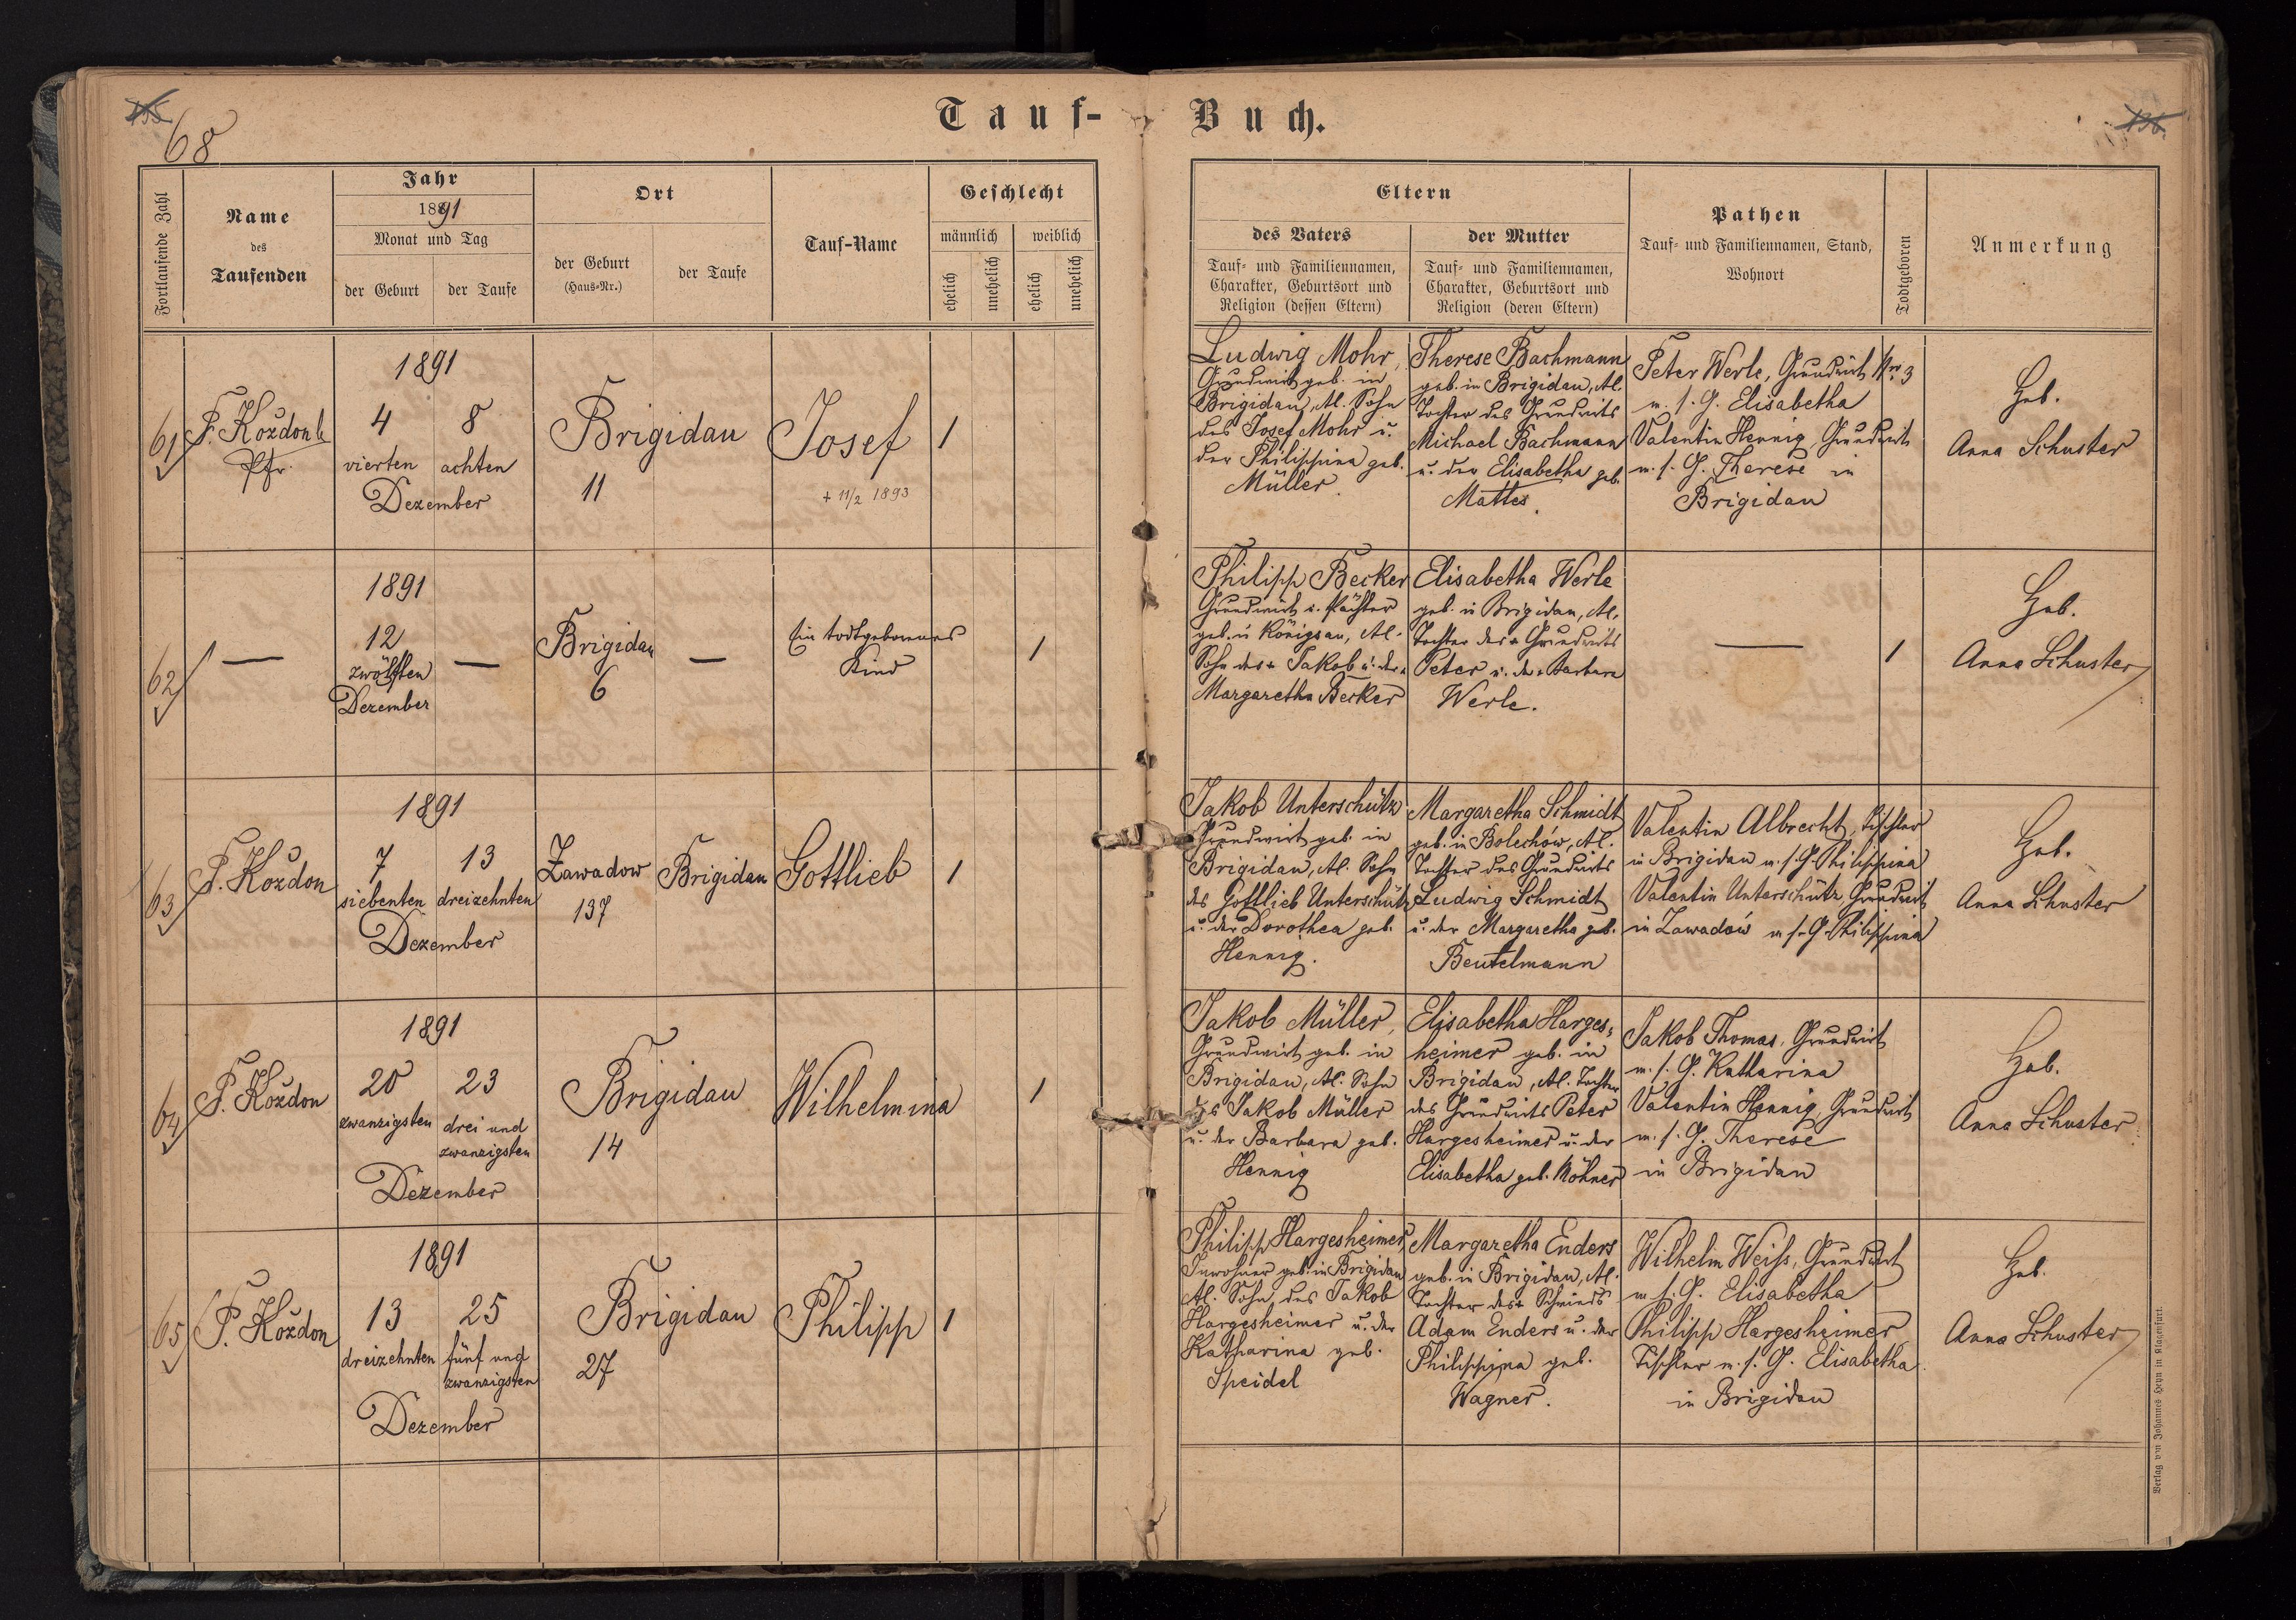 Tauf-Buch.
68
Fortlaufende Zahl
Name
des
Taufenden
Jahr
1891
Monat und Tag
der Geburt
der Taufe
Ort
der Geburt
(Haus-Nr.)
der Taufe
Tauf-Name
Geschlecht
männlich
weiblich
ehelich
unehelich
ehelich
unehelich
Eltern
des Vaters
Tauf- und Familiennamen,
Charakter, Geburtsort und
Religion (dessen Eltern)
der Mutter
Tauf- und Familiennamen,
Charakter, Geburtsort und
Religion (deren Eltern)
Pathen
Tauf- und Familiennamen, Stand,
Wohnort
Todtgeboren
Anmerkung
61
F. Koždon
Pfr.
1891
4
vierten
8
achten
Dezember
Brigidau
11
Josef
+ 11/2 1893
1
Ludwig Mohr,
Grundwirt geb. in
Brigidau, Al. Sohn
des Josef Mohr u.
der Philippina geb.
Müller.
Therese Bachmann
geb. in Brigidau, Al.
Tochter des Grundwirts
Michael Bachmann
u. der Elisabetha geb.
Mattes.
Peter Werle, Grundwirt Nr. 3
m. s. G. Elisabetha
Valentin Hennig, Grundwirt
m. s. G. Therese in
Brigidau
Heb.
Anna Schuster
62
—
1891
12
zwölften
Dezember
—
Brigidau
6
—
Ein todtgeborenes
Kind
1
Philipp Becker
Grundwirt u. Pächter
geb. in Königsau, Al.
Sohn des + Jakob u. der +
Margaretha Becker
Elisabetha Werle
geb. in Brigidau, Al.
Tochter des + Grundwirts
Peter u. der + Barbara
Werle.
—
1
Heb.
Anna Schuster
63
F. Koždon
1891
7
siebenten
13
dreizehnten
Dezember
Zawadow
137
Brigidau
Gottlieb
1
Jakob Unterschütz
Grundwirt geb. in
Brigidau, Al. Sohn
des Gottlieb Unterschütz
u. der Dorothea geb.
Hennig.
Margaretha Schmidt
geb. in Bolechów, Al.
Tochter des Grundwirts
Ludwig Schmidt
u. der Margaretha geb.
Beutelmann
Valentin Albrecht, Tischler
in Brigidau m. s. G. Philippina
Valentin Unterschütz, Grundwirt
in Zawadów m. s. G. Philippina
Heb.
Anna Schuster
64
F. Koždon
1891
20
zwanzigsten
23
drei und
zwanzigsten
Dezember
Brigidau
14
Wilhelmina
1
Jakob Müller,
Grundwirt geb. in
Brigidau, Al. Sohn
des Jakob Müller
u. der Barbara geb.
Hennig
Elisabetha Harges-
heimer geb. in
Brigidau, Al. Tochter
des Grundwirts Peter
Hargesheimer u. der
Elisabetha geb. Möhner
Jakob Thomas, Grundwirt
m. s. G. Katharina
Valentin Hennig, Grundwirt
m. s. G. Therese
in Brigidau
Heb.
Anna Schuster
65
F. Koždon
1891
13
dreizehnten
25
fünf und
zwanzigsten
Dezember
Brigidau
27
Philipp
1
Philipp Hargesheimer
Inwohner geb. in Brigidau
Al. Sohn des Jakob
Hargesheimer u. der
Katharina geb.
Speidel
Margaretha Enders
geb. in Brigidau, Al.
Tochter des + Schmieds
Adam Enders u. der
Philippina geb.
Wagner.
Wilhelm Weiss, Grundwirt
m. s. G. Elisabetha
Philipp Hargesheimer
Tischler m. s. G. Elisabetha
in Brigidau
Heb.
Anna Schuster
Verlag von Johannes Heyn in Klagenfurt.